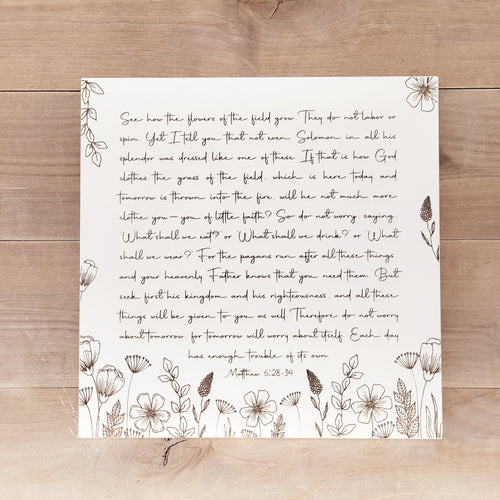 See how the flowers of the field grow. They do not labor or
spin. Yet I tell you that not even Solomon in all his
splendor was dressed like one of these. If that is how God
clothes the grass of the field, which is here today and
tomorrow is thrown into the fire, will he not much more
clothe you—you of little faith? So do not worry, saying,
'What shall we eat?' or 'What shall we drink?' or 'What
shall we wear?' For the pagans run after all these things,
and your heavenly Father knows that you need them. But
seek first his kingdom and his righteousness, and all these
things will be given to you as well. Therefore do not worry
about tomorrow, for tomorrow will worry about itself. Each day
has enough trouble of its own.
Matthew 6:28-34